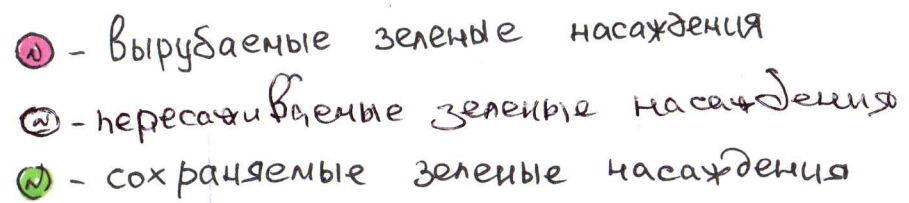 N - вырубаемые зеленые насаждения
N - пересаживаемые зеленые насаждения
N - сохраняемые зеленые насаждения